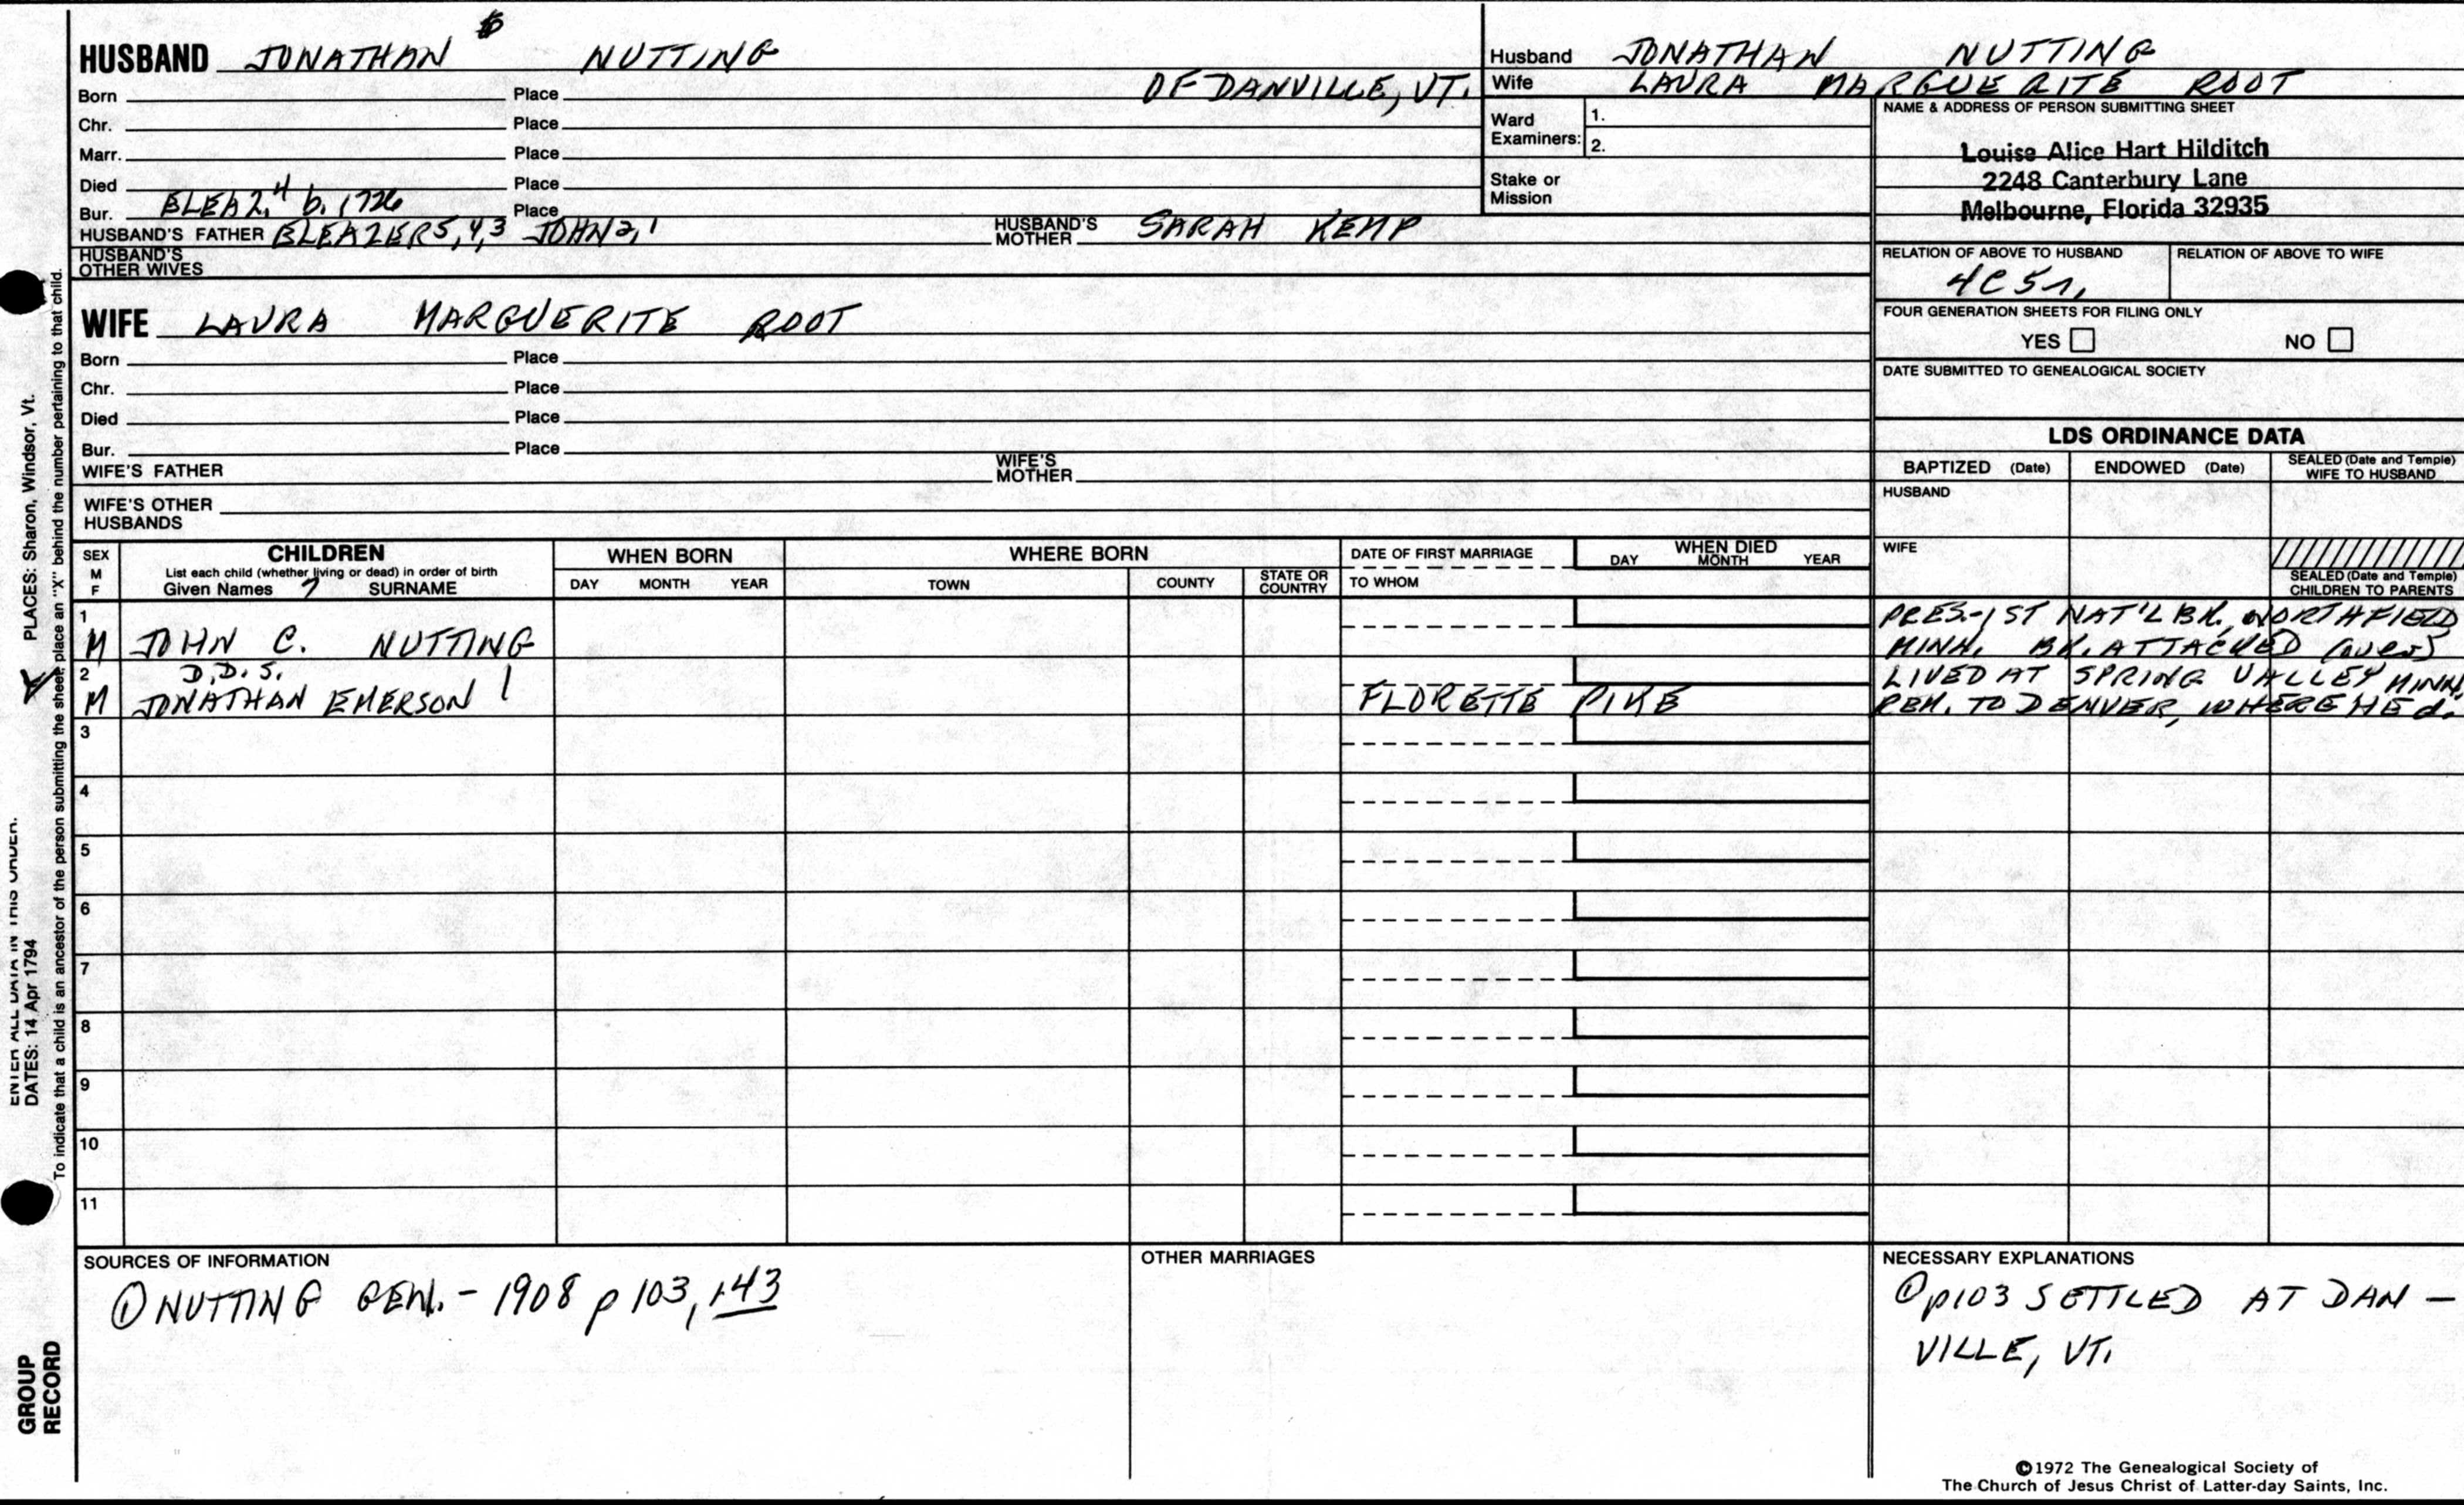 HUSBAND JONATHAN 6 NUTTING
Born Place OF DANVILLE, VT.
Chr. Place
Marr. Place
Died Place
ELEAZ,4 b. 1726
Bur. Place
HUSBAND'S FATHER ELEAZER5,4,3 JOHN2,1 HUSBAND'S MOTHER SARAH KEMP
HUSBAND'S OTHER WIVES
WIFE LAURA MARGUERITE ROOT
Born Place
Chr. Place
Died Place
Bur. Place
WIFE'S FATHER WIFE'S MOTHER
WIFE'S OTHER HUSBANDS
Husband JONATHAN NUTTING
Wife LAURA MARGUERITE ROOT
Ward Examiners: 1.
2.
Stake or Mission
NAME & ADDRESS OF PERSON SUBMITTING SHEET
Louise Alice Hart Hilditch
2248 Canterbury Lane
Melbourne, Florida 32935
RELATION OF ABOVE TO HUSBAND RELATION OF ABOVE TO WIFE
4C5r,
FOUR GENERATION SHEETS FOR FILING ONLY
YES NO
DATE SUBMITTED TO GENEALOGICAL SOCIETY
LDS ORDINANCE DATA
BAPTIZED (Date) ENDOWED (Date) SEALED (Date and Temple) WIFE TO HUSBAND
HUSBAND
WIFE
SEALED (Date and Temple) CHILDREN TO PARENTS
SEX M F
CHILDREN
List each child (whether living or dead) in order of birth
Given Names 7 SURNAME
WHEN BORN
DAY MONTH YEAR
WHERE BORN
TOWN COUNTY STATE OR COUNTRY
DATE OF FIRST MARRIAGE
TO WHOM
WHEN DIED
DAY MONTH YEAR
1
M JOHN C. NUTTING
PRES.-1ST NAT'L BK., NORTHFIELD
MINN. BK. ATTACKED (over)
2 D.D.S.
M JONATHAN EMERSON FLORETTE PIKE
LIVED AT SPRING VALLEY MINN.
REM. TO DENVER, WHERE HE d.
3
4
5
6
7
8
9
10
11
SOURCES OF INFORMATION
① NUTTING GEN. - 1908 p 103, 143
OTHER MARRIAGES
NECESSARY EXPLANATIONS
① p103 SETTLED AT DAN-
VILLE, VT.
©1972 The Genealogical Society of
The Church of Jesus Christ of Latter-day Saints, Inc.
ENTER ALL DATA IN THIS ORDER.
DATES: 14 Apr 1794 PLACES: Sharon, Windsor, Vt.
To indicate that a child is an ancestor of the person submitting the sheet, place an "X" behind the number pertaining to that child.
GROUP
RECORD